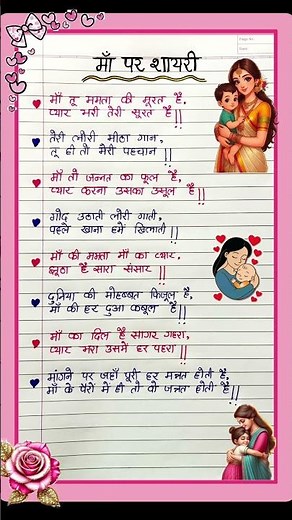 माँ पर शायरी
माँ तू ममता की मूरत है,
प्यार भरी तेरी सूरत है!!
तेरी लोरी मीठा गान,
तू ही तो मेरी पहचान!!
माँ तो जन्नत का फूल है,
प्यार करना उसका उसूल है!!
गोद उठाती लोरी गाती,
पहले खाना हमें खिलाती!!
माँ की ममता माँ का प्यार,
झूठा है सारा संसार!!
दुनिया की मोहब्बत फिजूल है,
माँ की हर दुआ कबूल है!!
माँ का दिल है सागर गहरा,
प्यार भरा उसमें हर पहरा!!
मांगने पर जहाँ पूरी हर मन्नत होती है,
माँ के पैरों में ही तो वो जन्नत होती है!!